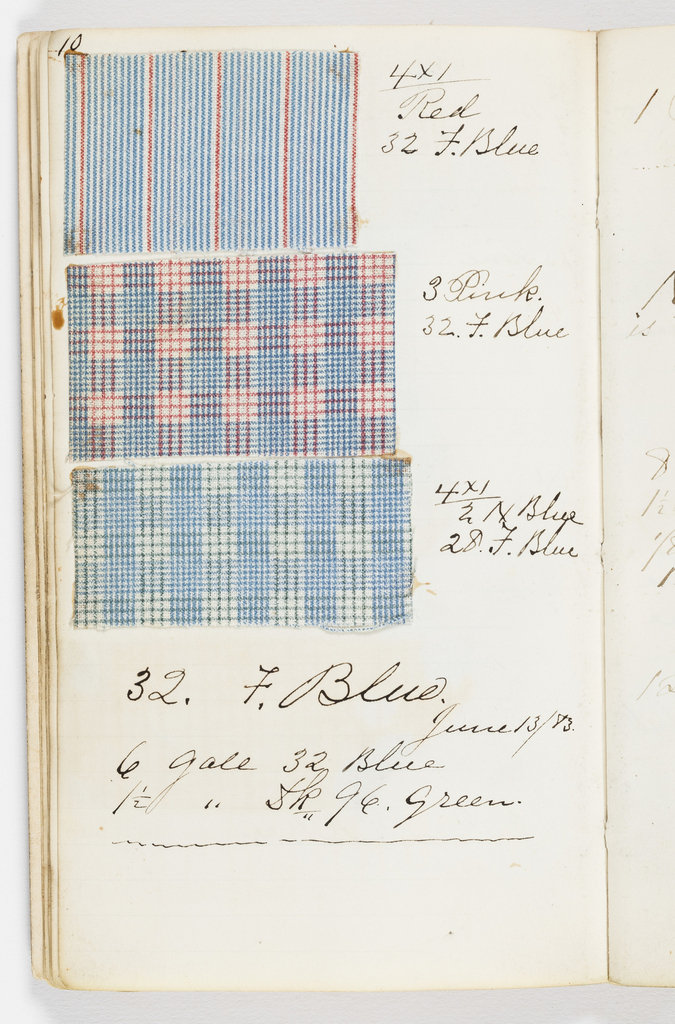 10
4x1
Red
32 F. Blue
3 Pink.
32. F. Blue
4x1
2 N Blue
28. F. Blue
32. F. Blue.
June 13/83.
6 Galls 32 Blue
1½ " Dk 96. Green.
1
is
8
1½